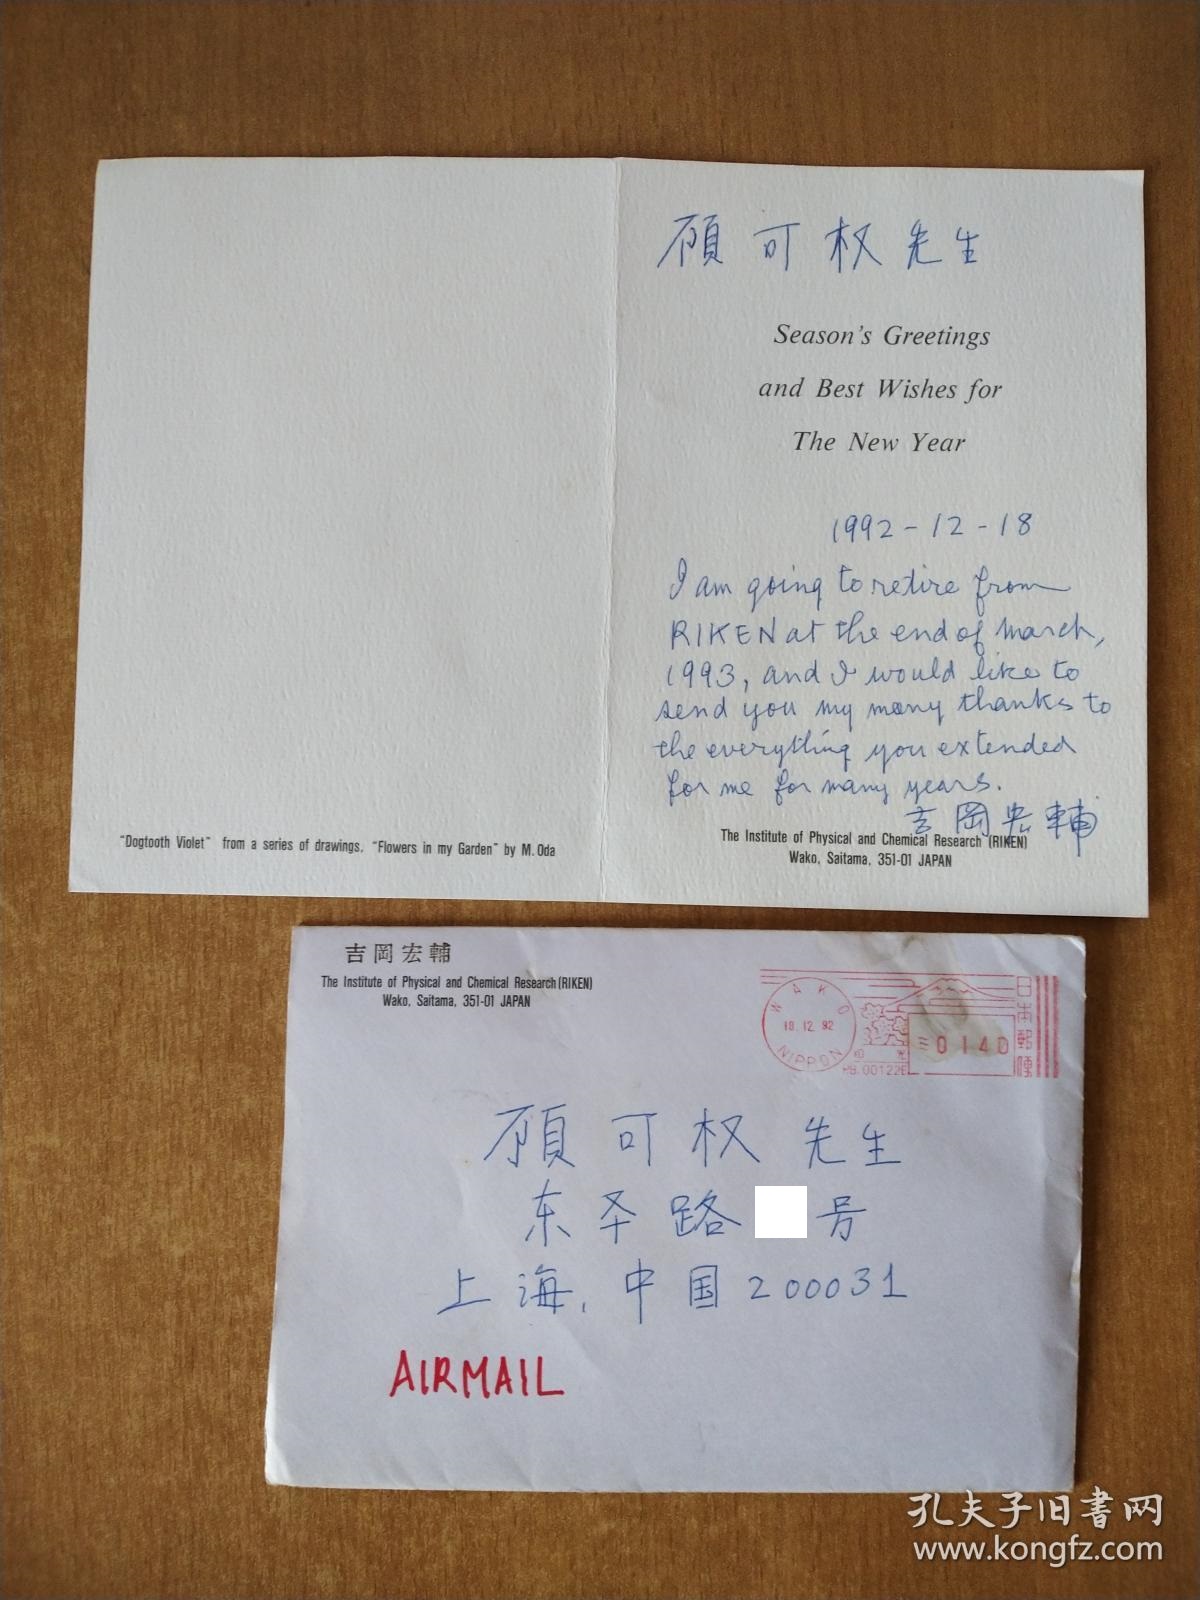 顾可权先生
Season's Greetings
and Best Wishes for
The New Year
1992-12-18
I am going to retire from
RIKEN at the end of March,
1993, and I would like to
send you my many thanks to
the everything you extended
for me for many years.
吉岡宏輔
The Institute of Physical and Chemical Research (RIKEN)
Wako, Saitama, 351-01 JAPAN
"Dogtooth Violet" from a series of drawings, "Flowers in my Garden" by M. Oda
吉岡宏輔
The Institute of Physical and Chemical Research (RIKEN)
Wako, Saitama, 351-01 JAPAN
WAKO
18.12.92
NIPPON
0140
日本郵便
顾可权先生
东 路 号
上海,中国200031
AIRMAIL
孔夫子旧书网
www.kongfz.com